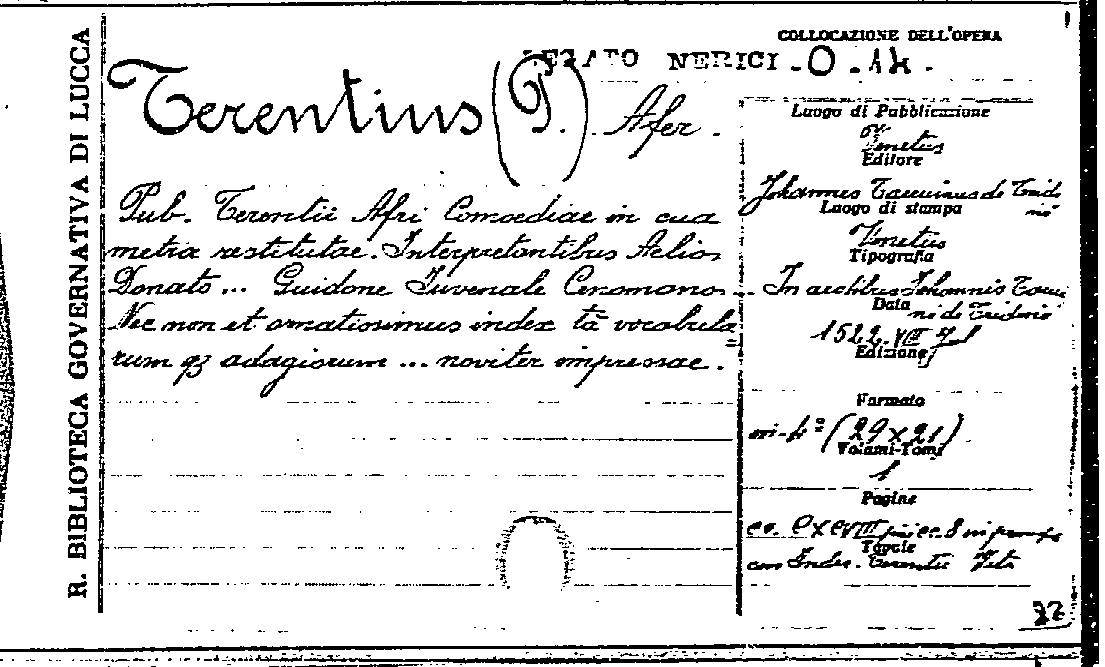 R. BIBLIOTECA GOVERNATIVA DI LUCCA
COLLOCAZIONE DELL'OPERA
LEGATO NERICI. O. 14.
Terentius (P.) Afer.
Pub. Terentii Afri Comoediae in sua
metra restitutae. Interpretantibus Aelio
Donato ... Guidone Juvenale Cenomano ...
Nec non et ornatissimus index tā vocabula
rum qz adagiorum ... noviter impressae.
Luogo di Pubblicazione
Venetus
Editore
Johannes Tacuinus de Tridi
no
Luogo di stampa
Venetus
Tipografia
In aedibus Johannis Tacui
ni de Tridino
Data
1522. VIII Jul
Edizione
Formato
in-4° (29x21)
Volumi-Tomi
1
Pagine
cc. CXCVIII più cc. 8 in
Tavole
con Index. Terentii Vita
32